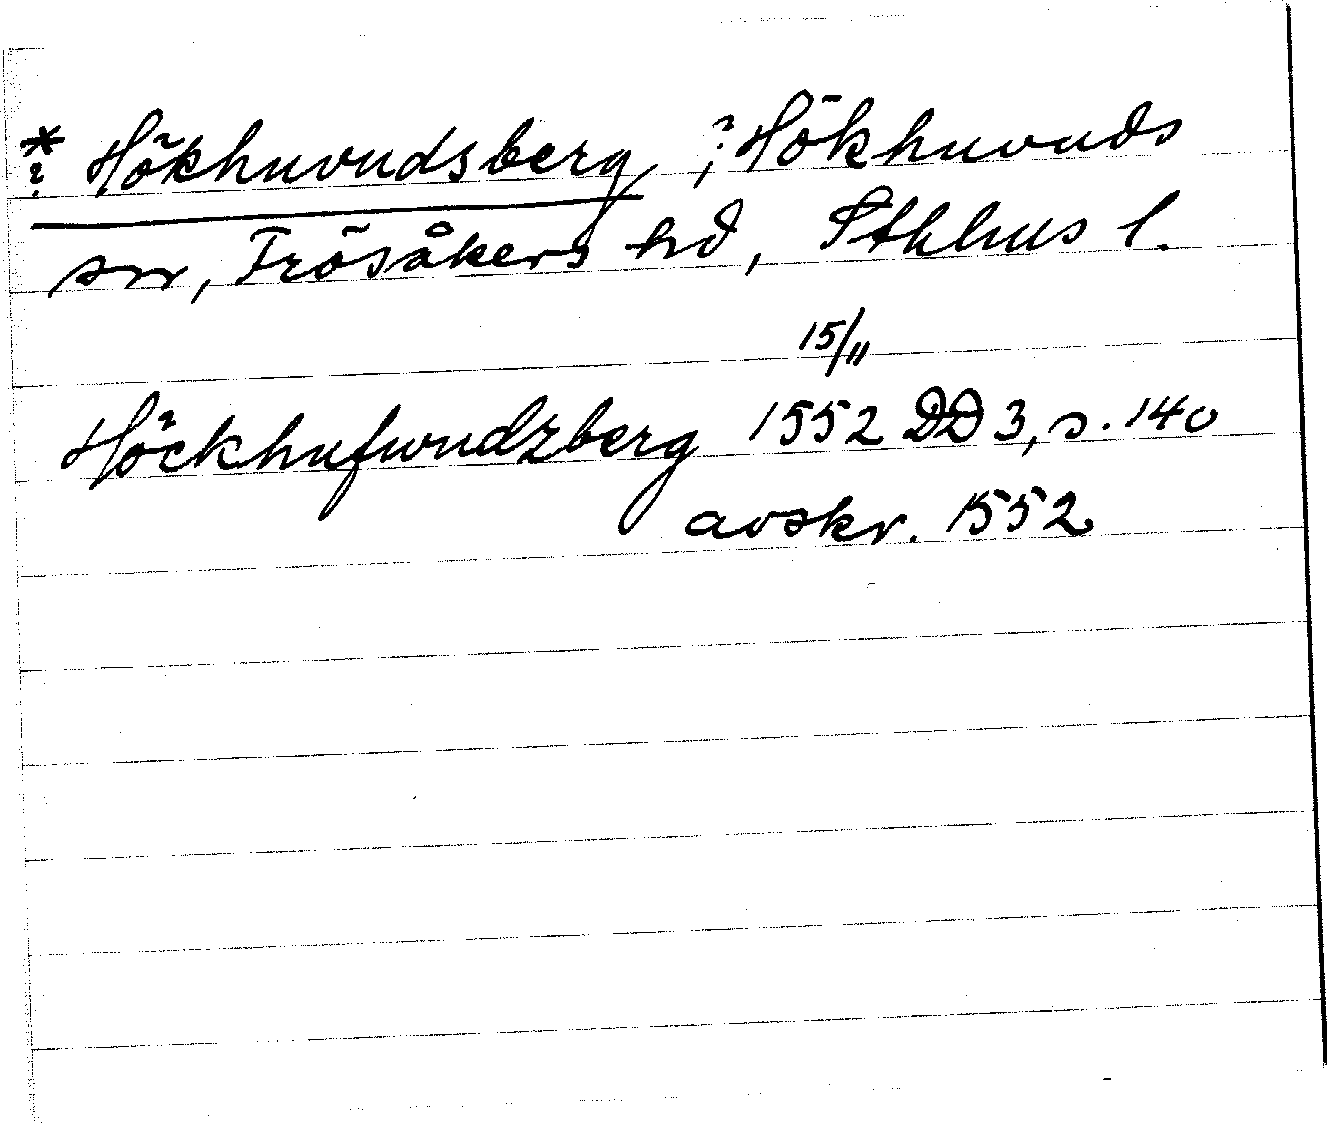 *? Hökhuvudsberg, ? Hökhuvuds
sn, Frösåkers hd, Sthlms l.
15/11
Höckhufwudzberg 1552 DD 3, s. 140
avskr. 1552